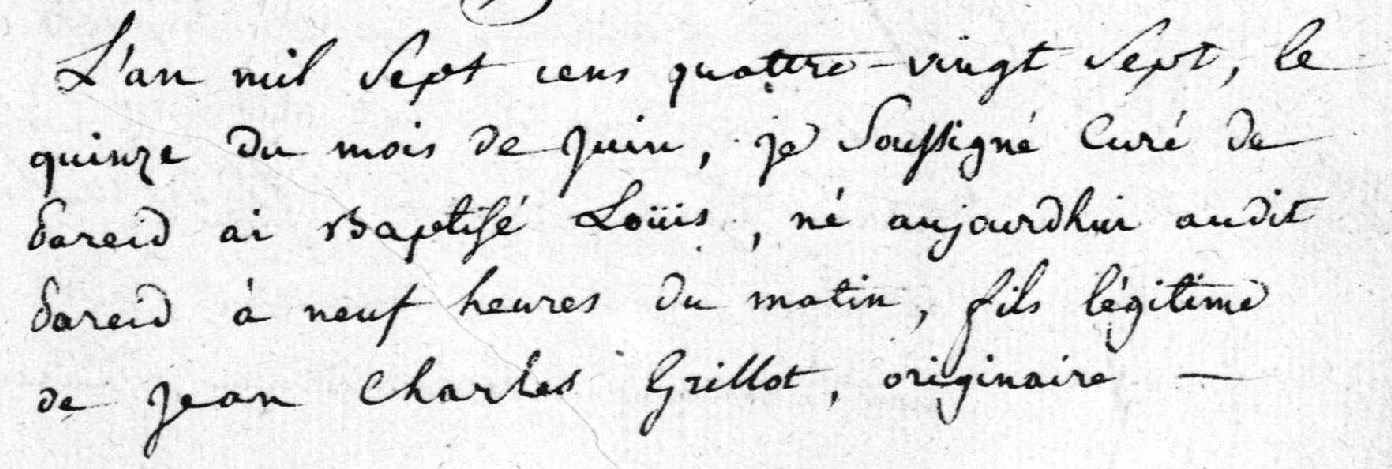 L'an mil Sept cens quattre-vingt Sept, le
quinze du mois de juin, je Soussigné Curé de
ai Baptisé Loüis, né aujourdhui audit
à neuf heures du matin, fils légitime
de jean Charles Grillot, originaire —